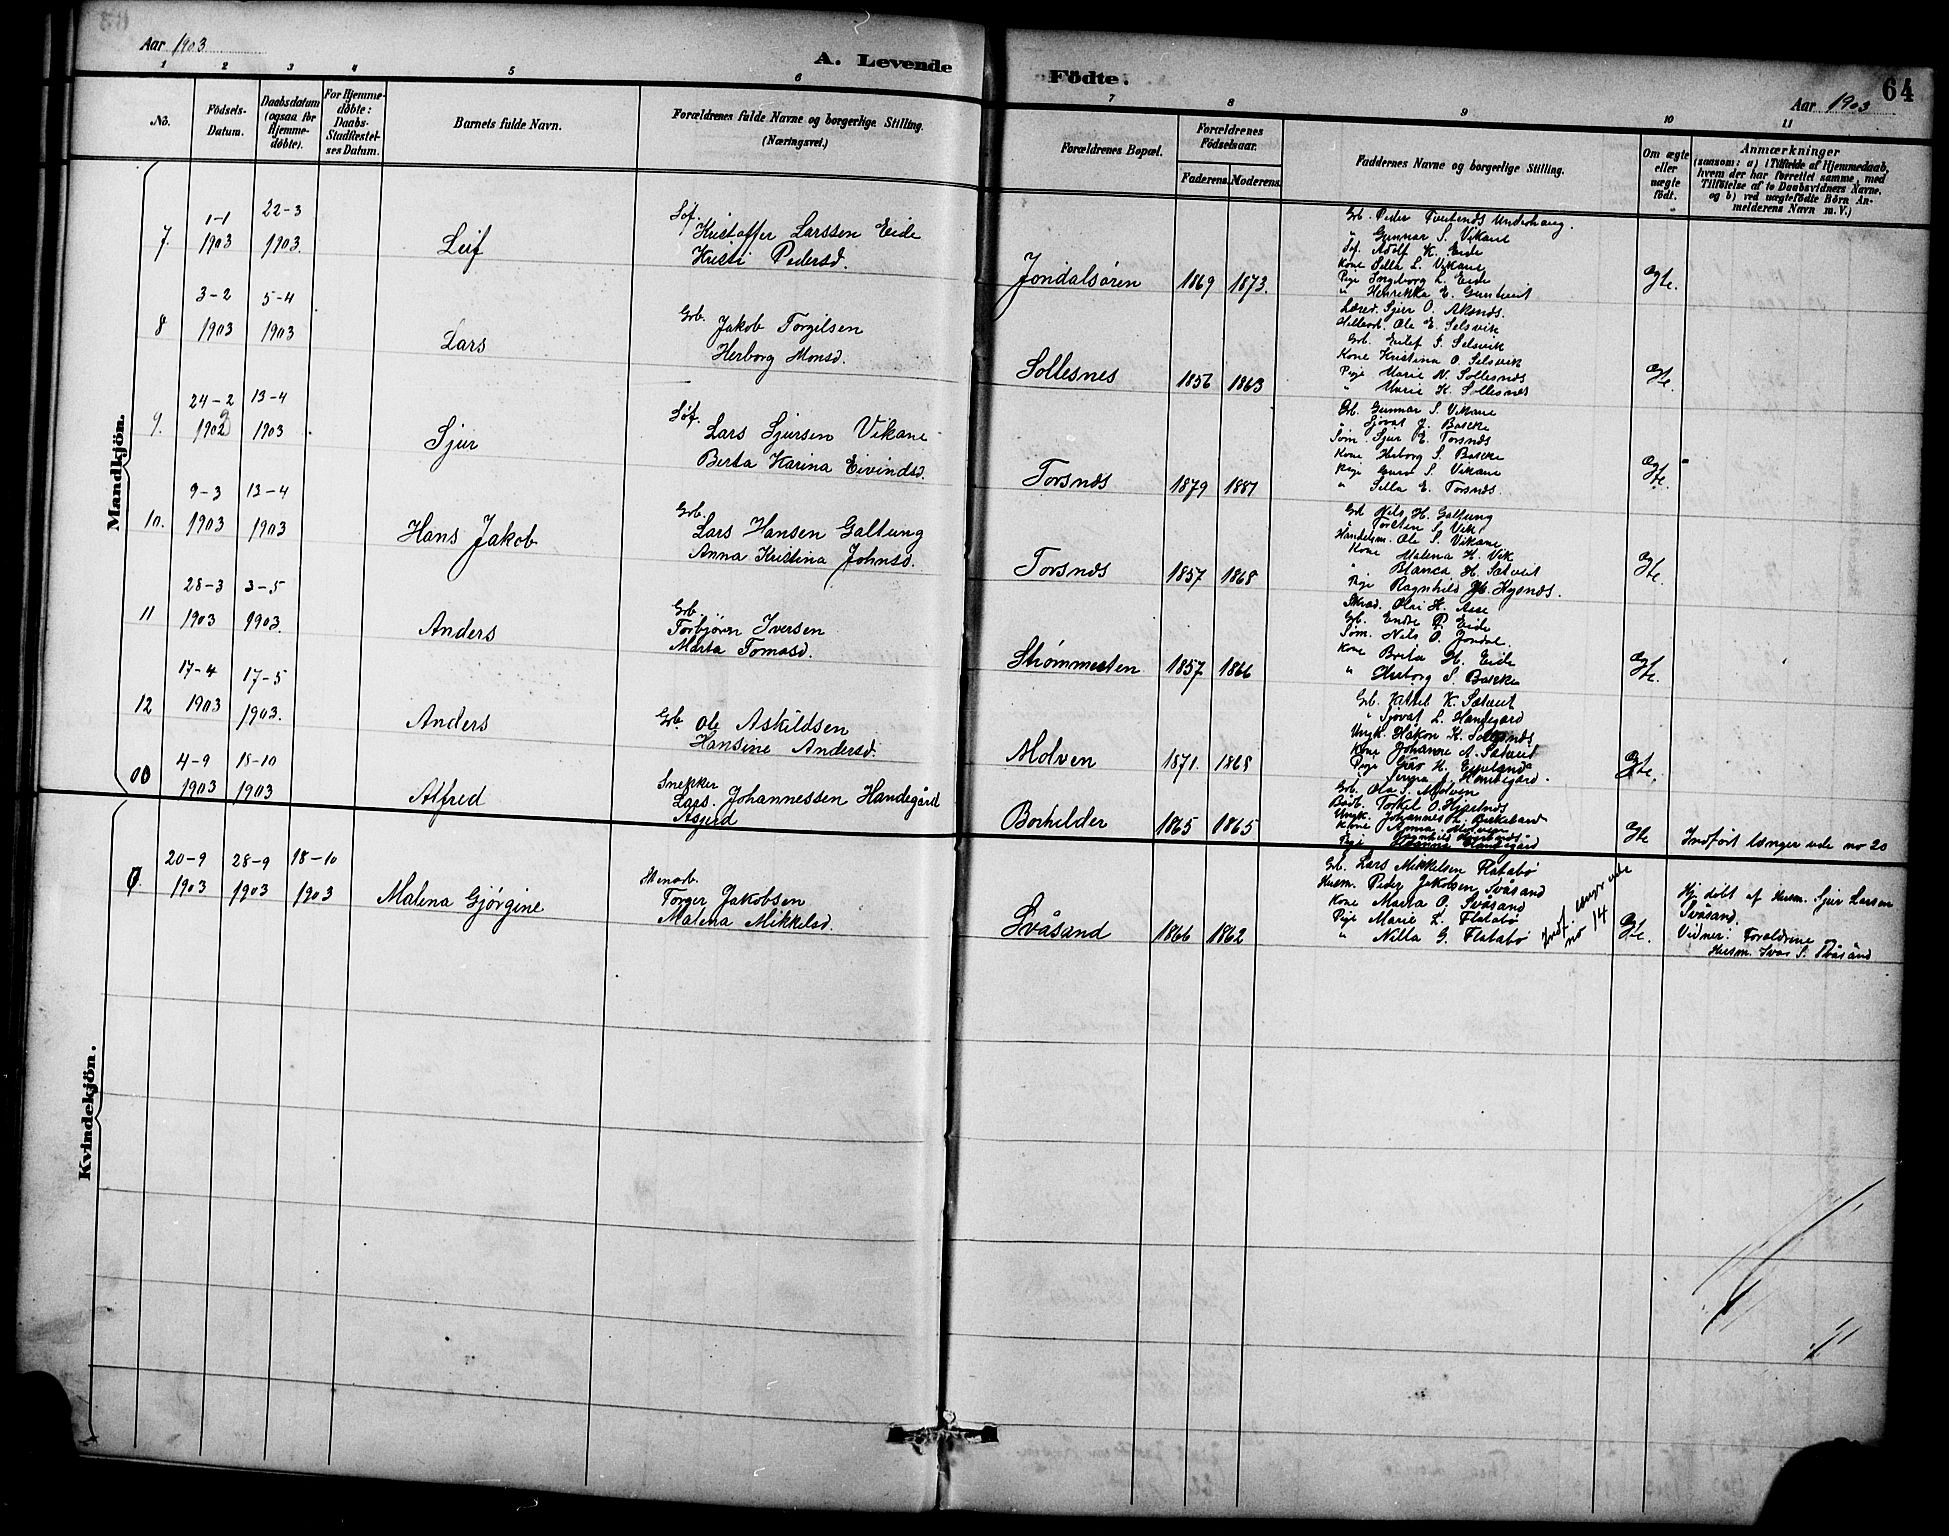 Aar 1903
A. Levende Födte.
Aar 1903
64
1 2 3 4 5 6 7 8 9 10 11
No.
Födsels-
Datum.
Daabsdatum
(ogsaa for
Hjemme-
döbte).
For Hjemme-
döbte:
Daabs-
Stadfæstel-
ses Datum.
Barnets fulde Navn.
Forældrenes fulde Navne og borgerlige Stilling.
(Næringsvei.)
Forældrenes Bopæl.
Forældrenes
Födselsaar.
Faderens. Moderens.
Faddernes Navne og borgerlige Stilling.
Om ægte
eller
uægte
födt.
Anmærkninger
(saasom: a) i Tilfælde af Hjemmedaab,
hvem der har forrettet samme, med
Tilföielse af to Daabsvidners Navne,
og b) ved uægtefödte Börn An-
melderens Navn m. V.)
Mandkjön.
7.
1-1
1903
22-3
1903.
Leif
Søf.
Kristoffer Larssen Eide
Kristi Pedersd.
Jondalsøren
1869
1873.
Grb. Peder Tveitends Underhaug.
" Gunnar S. Vikane
Søf. Adolf K. Eide
Kone Silla L. Vikane
Pige Ingeborg L. Eide
" Henrikka E.
Egte.
8
3-2
1903
5-4
1903
Lars
Grb.
Jakob Torgilsen
Herborg Monsd.
Sollesnes
1856
1863
Lærer. Sjur O. Aksnds.
Ole E. Selsvik
Grb. S. Selsvik
Kone Kristina O. Selsvik
Pige Marie N. Sollesnds
" Marie K. Sollesnes
Egte.
9.
24-2
1902
13-4
1903
Sjur
Søf.
Lars Sjursen Vikane
Berta Karina Eivindsd.
Torsnds
1879
1881
Grb. Gunnar S. Vikane
" Sjovat J. Bakke
Søm. Sjur E. Torsnds
Kone Herborg S. Bakke
Pige Guro S. Vikane
" Silla E. Torsnds.
Egte.
10.
9-3
1903
13-4
1903
Hans Jakob
Grb.
Lars Hansen Galtung
Anna Kristina Johnsd.
Torsnds
1857
1868
Grb Nils H. Galtung
" Torsten S. Vik
Handelsm. Ole S. Vikane
Kone Malena H. Vik
" Blanca H. Sætveit
Pige Ragnhild Hysnds.
Egte.
11
28-3
1903
3-5
1903.
Anders
Grb.
Torbjørn Iversen
Marta Tomasd.
Strømmesten
1857
1866
Skræd. Olai H. Aase
Grb. Endre P. Eide
Søm. Nils O. Jondal
Kone Brita H. Eide
" Herborg S. Bakke
Egte.
12
17-4
1903
17-5
1903.
Anders
Grb. Ole Askildsen
Hansine Andersd.
Molven
1871.
1868
Grb. Kittel K. Sætveit
" Sjovat L. Handegård
Ungk. Håkon K. Sollesnds
Kone Johanne A. Sætveit
Pige Guro H.
Handegård.
Egte.
4-9
1903
18-10
1903
Alfred
Snekker
Lars Johannessen Handegård
Asgerd
Borhilder
1865
1865
Grb. Ola S. Molven
Bødk. Torkel O. Hjartnds
Ungk. Johannes L. Birkeland
Kone Anna Molven
Pige Handegård
Egte
Indført længer ude no 20
Kvindekjön.
20-9
1903
28-9
1903
18-10
1903
Malena Gjørgine
Stenarb.
Torger Jakobsen
Malena Mikkelsd.
Svåsand
1866
1862
Grb. Lars Mikkelsen Flatabø
Husm. Peder Jakobsen Svåsand
Kone Marta O. Svåsand
Pige Marie L. Flatabø
" Nilla G. Flatabø
Indf. længer ude
no 14
Egte.
Hj. døbt af Husm. Sjur Larsen
Svåsand.
Vidner: Forældrene
Husm. Ivar S. Svåsand